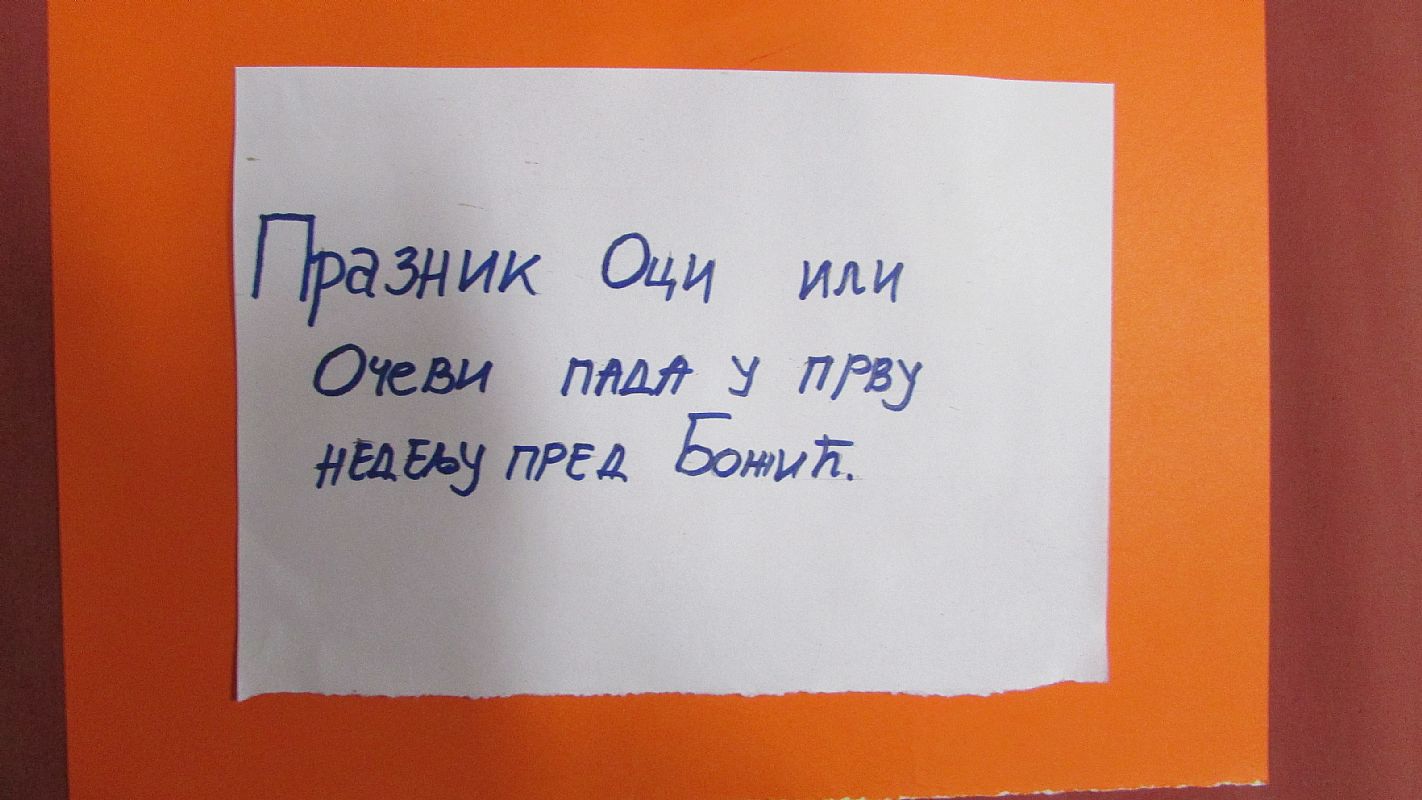 Празник Оци или
Очеви пада у прву
недељу пред Божић.